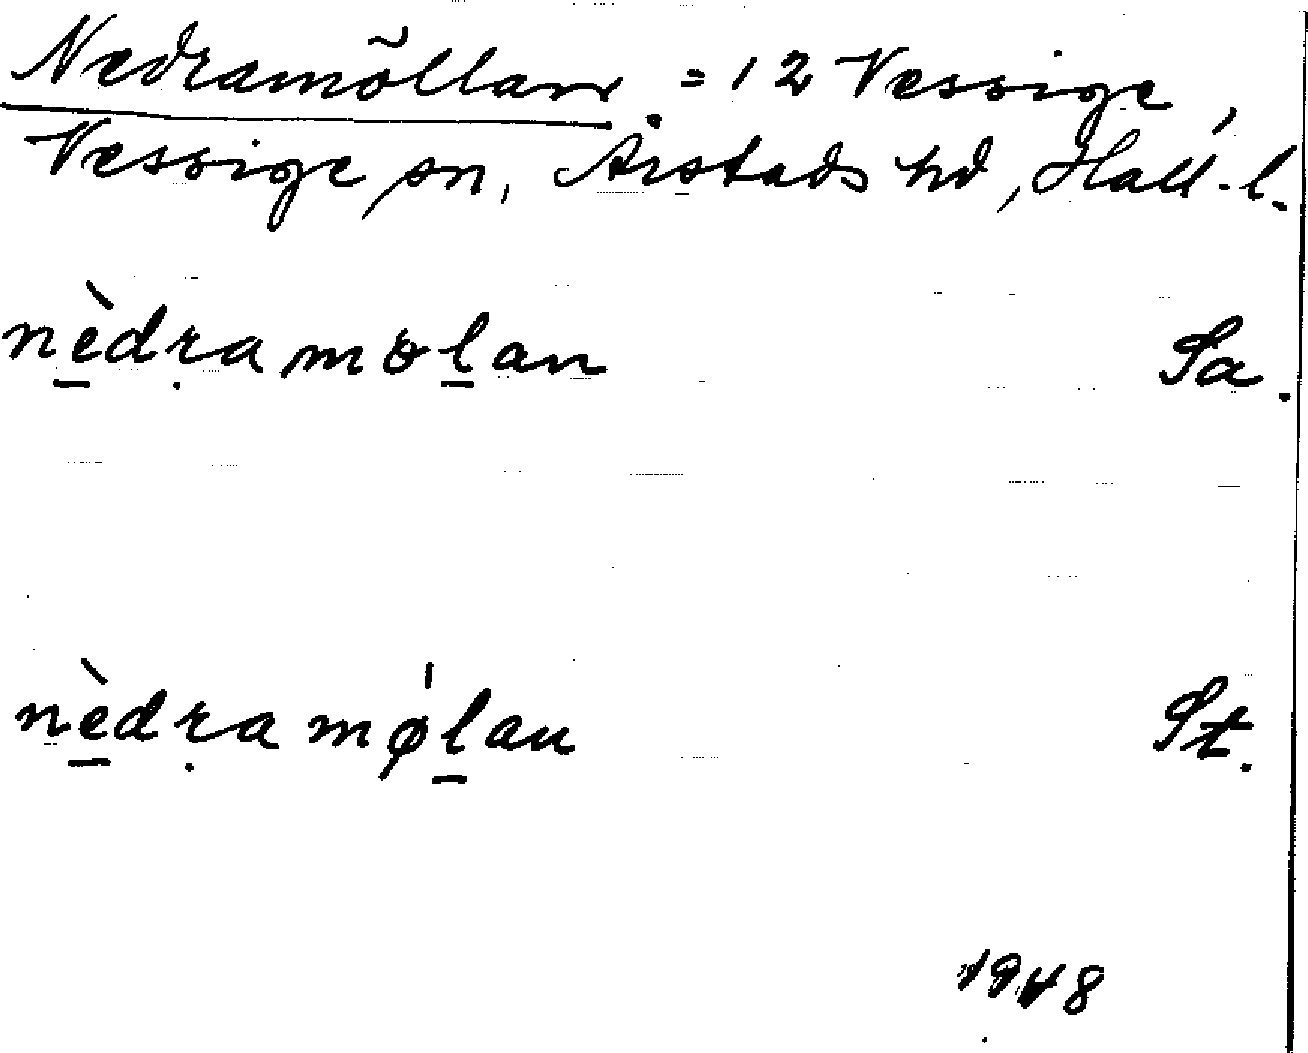 Nedramöllan = 12 Vessige,
Vessige sn, Årstads hd, Hall. l.
nèdramɵlan Sa.
nèdramǿlan St.
1948